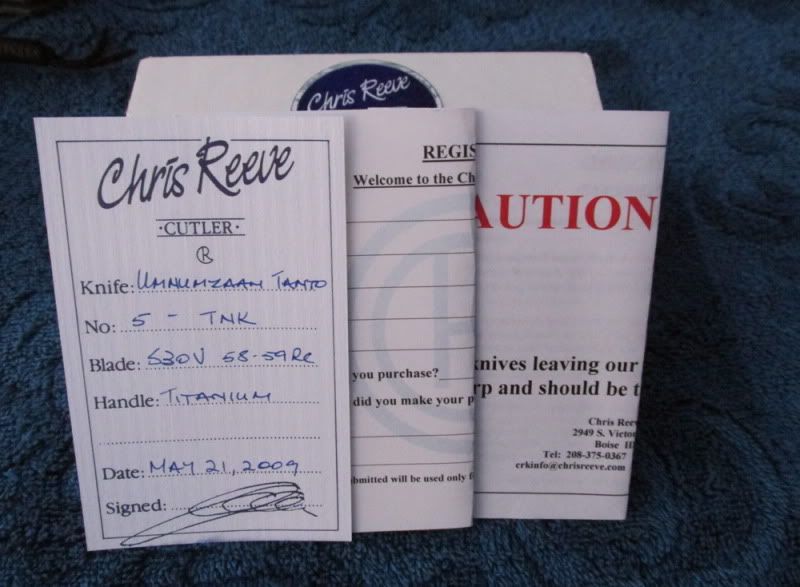 Chris Reeve
Chris Reeve
·CUTLER·
R
Knife: UMNUMZAAN TANTO
No: 5 - TNK
Blade: S30V 58-59RC
Handle: TITANIUM
Date: MAY 21, 2009
Signed:
REGIS
Welcome to the Ch
you purchase?
did you make your p
bmitted will be used only f
AUTION
knives leaving our
rp and should be t
Chris Reev
2949 S. Victo
Boise ID
Tel: 208-375-0367
crkinfo@chrisreeve.com